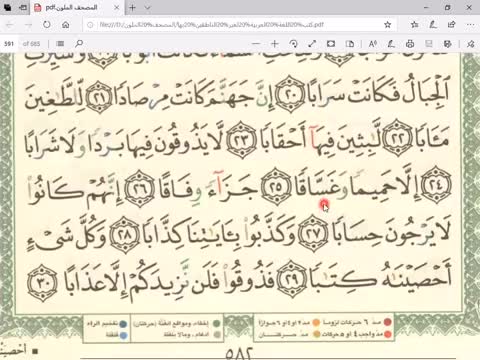 المصحف الملون.pdf
file:///D:/كتب%20اللغة%20العربية%20لغير%20الناطقين%20بها/المصحف%20الملون.pdf
591 of 685
ٱلْجِبَالُ فَكَانَتْ سَرَابًا ٢٠ إِنَّ جَهَنَّمَ كَانَتْ مِرْصَادًا ٢١ لِّلطَّٰغِينَ
مَـَٔابًا ٢٢ لَّٰبِثِينَ فِيهَآ أَحْقَابًا ٢٣ لَّا يَذُوقُونَ فِيهَا بَرْدًا وَلَا شَرَابًا
٢٤ إِلَّا حَمِيمًا وَغَسَّاقًا ٢٥ جَزَآءً وِفَاقًا ٢٦ إِنَّهُمْ كَانُوا۟
لَا يَرْجُونَ حِسَابًا ٢٧ وَكَذَّبُوا۟ بِـَٔايَٰتِنَا كِذَّابًا ٢٨ وَكُلَّ شَىْءٍ
أَحْصَيْنَٰهُ كِتَٰبًا ٢٩ فَذُوقُوا۟ فَلَن نَّزِيدَكُمْ إِلَّا عَذَابًا ٣٠
مدّ ٦ حركات لزوماً مدّ ٢ او ٤ او ٦ جوازاً إخفاء، ومواقع الغنّة (حركتان) تفخيم الراء
مدّ واجب ٤ او ٥ حركات مدّ حركتان ادغام، ومالا يلفظ قلقلة
٥٨٢